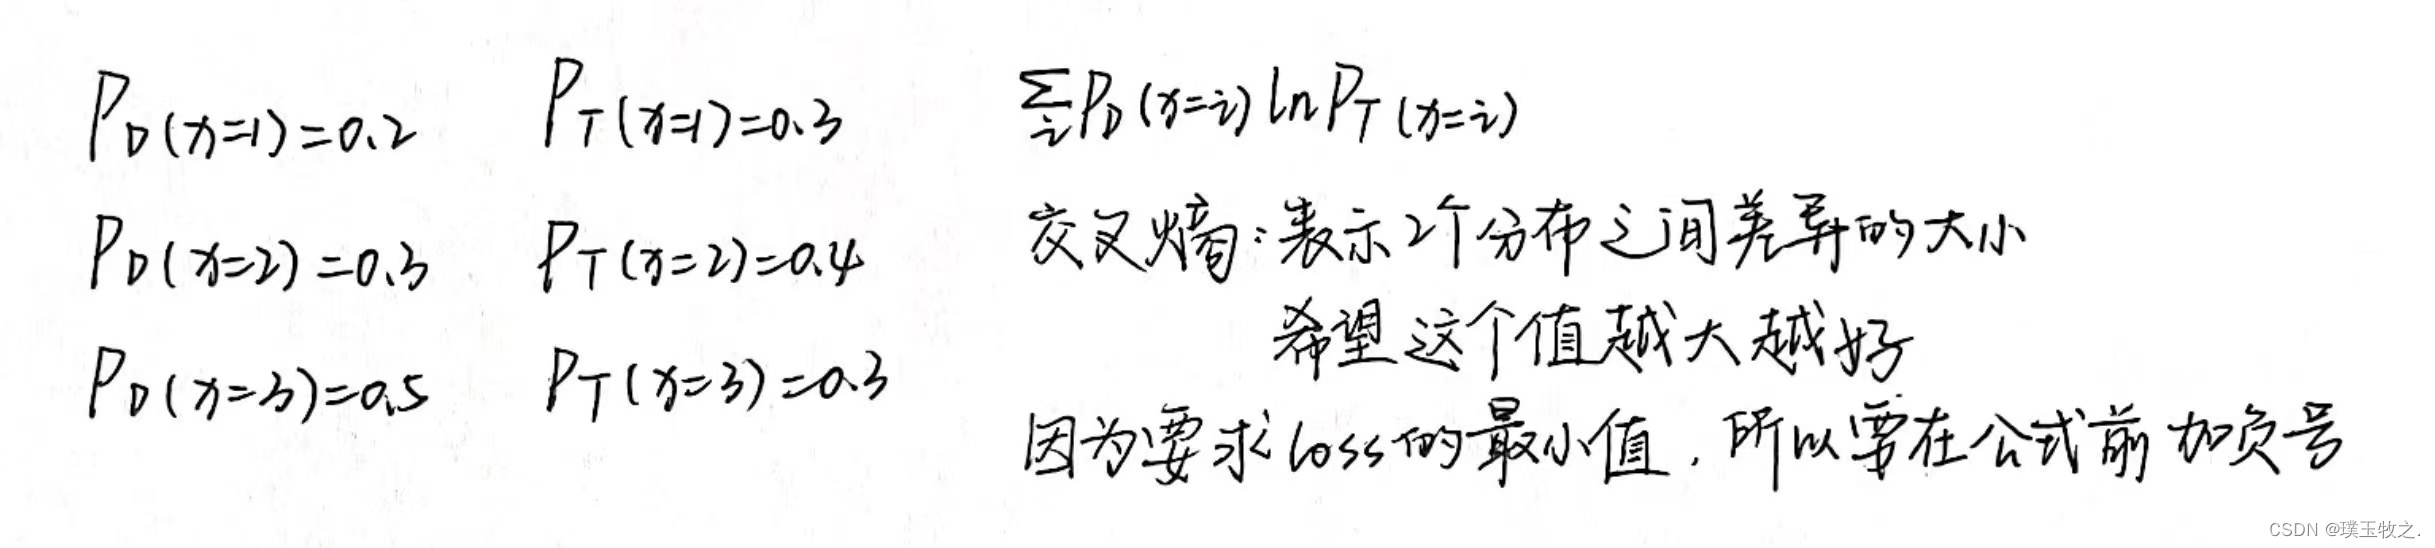 P_D(x=1)=0.2
P_T(x=1)=0.3
P_D(x=2)=0.3
P_T(x=2)=0.4
P_D(x=3)=0.5
P_T(x=3)=0.3
∑_i P_D(x=i) ln P_T(x=i)
交叉熵:表示2个分布之间差异的大小
希望这个值越大越好
因为要求loss的最小值,所以要在公式前加负号
CSDN @璞玉牧之.